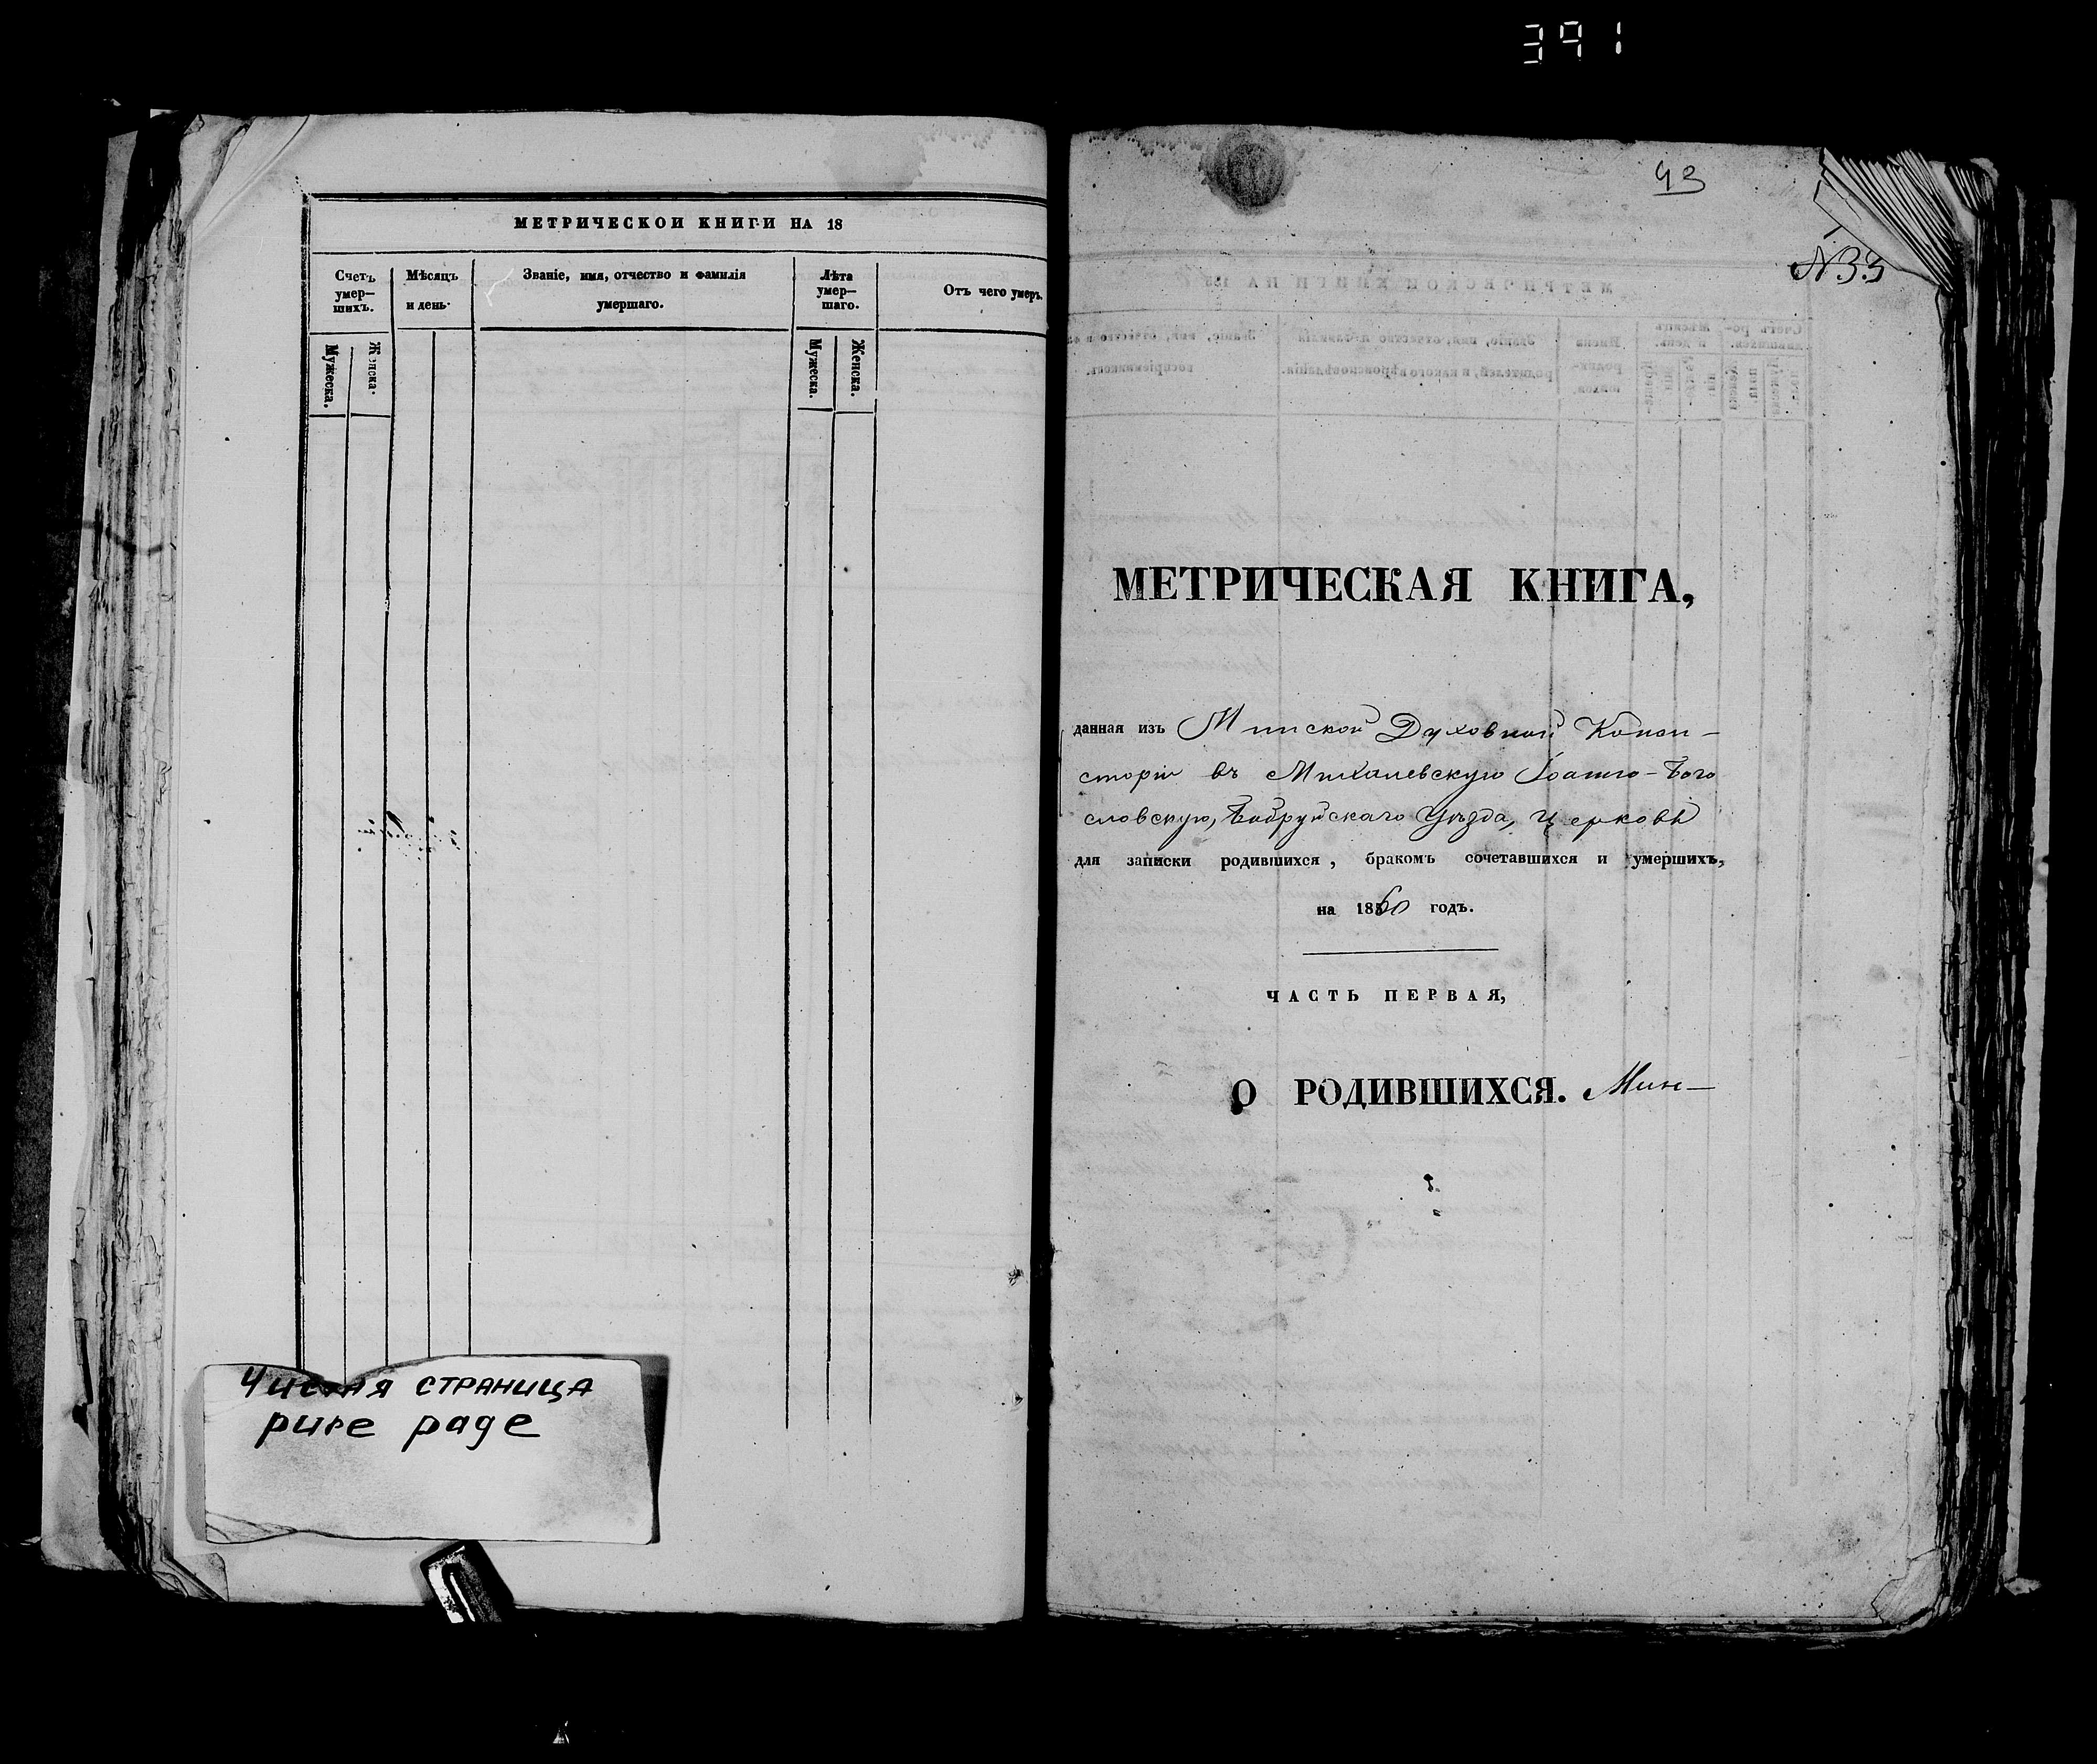 391
МЕТРИЧЕСКОЙ КНИГИ НА 18
Счетъ умер-шихъ.
Мѣсяцъ и день.
Званіе, имя, отчество и фамилія умершаго.
Лѣта умер-шаго.
Отъ чего умеръ.
Мужеска.
Женска.
Мужеска.
Женска.
Чистая страница
pure page
43
№33
МЕТРИЧЕСКАЯ КНИГА,
данная изъ Минской Духовной Конси-
сторіи въ Михалевскую Іоанно-Бого
словскую, Бобруйскаго Уѣзда, Церковь
для записки родившихся, бракомъ сочетавшихся и умершихъ,
на 1860 годъ.
ЧАСТЬ ПЕРВАЯ,
О РОДИВШИХСЯ. Мин-